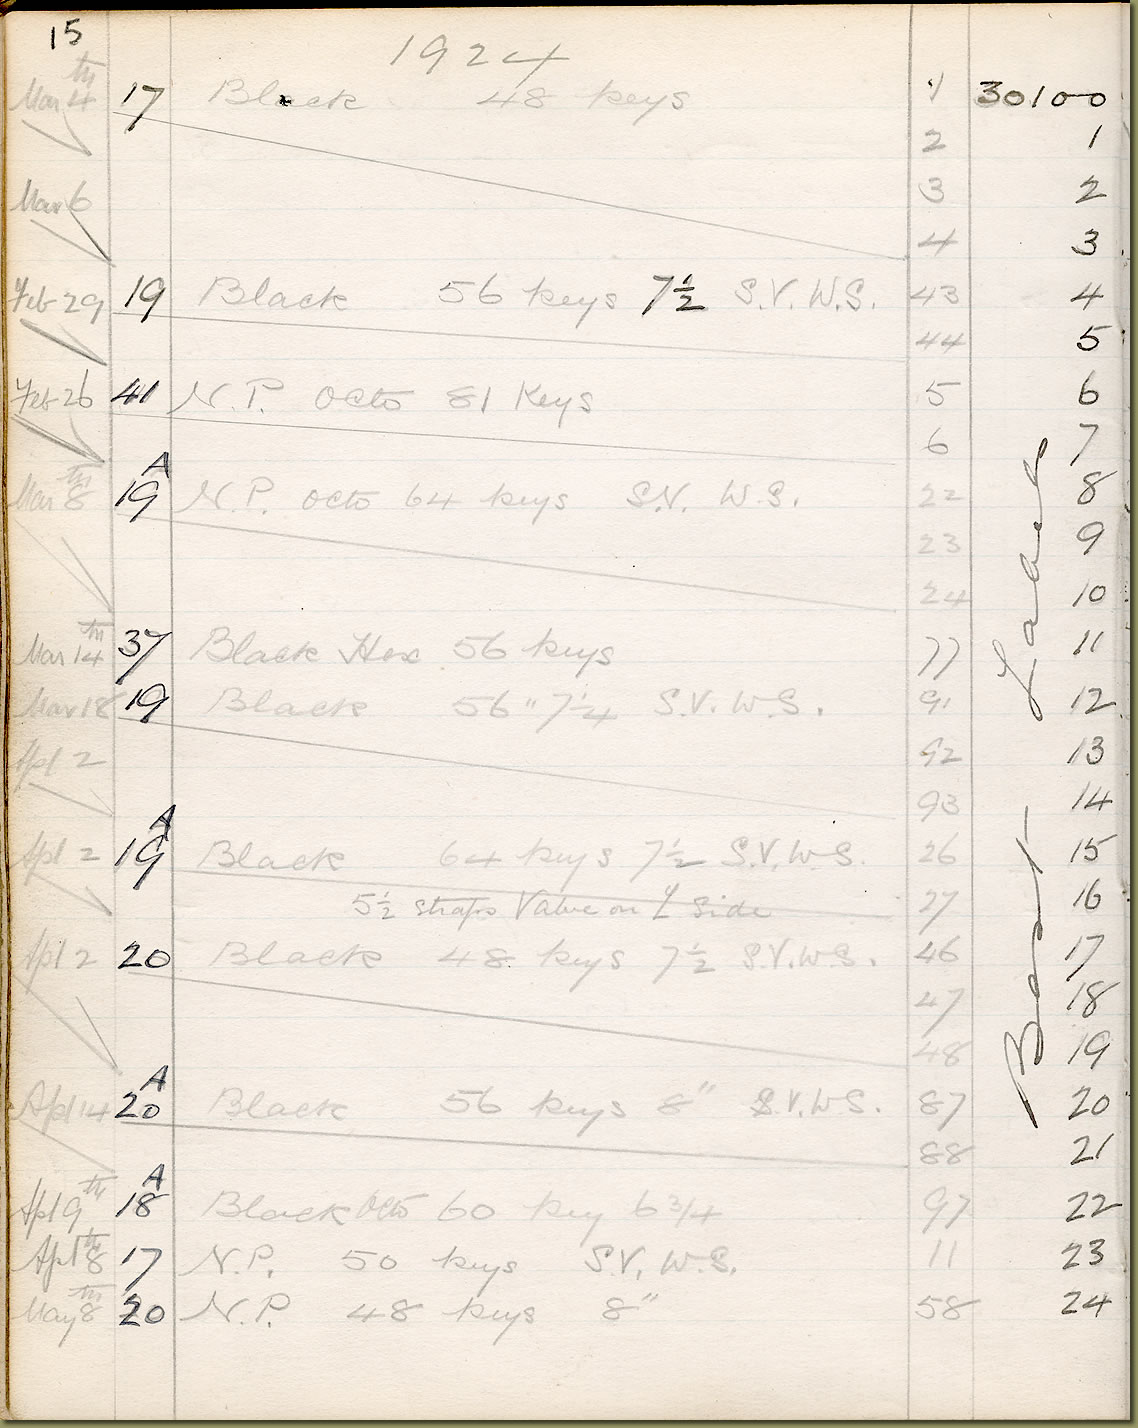 15
1924
Mar 4th 17 Black 48 keys 1 30100
2 1
Mar 6 3 2
4 3
Feb 29 19 Black 56 keys 7½ S.V. W.S. 43 4
44 5
Feb 26 41 N.P. Octo 81 Keys 5 6
6 7
Mar 8th 19A N.P. Octo 64 keys S.V. W.S. 22 8
23 9
24 10
Mar 14th 37 Black Hex 56 keys 77 11
Mar 18 19 Black 56 " 7¼ S.V. W.S. 91 12
Apl 2 92 13
93 14
Apl 2 19A Black 64 keys 7½ S.V. W.S. 26 15
5½ straps Valve on L side 27 16
Apl 2 20 Black 48 keys 7½ S.V. W.S. 46 17
47 18
48 19
Apl 14 20A Black 56 keys 8" S.V. W.S. 87 20
88 21
Apl 9th 18A Black Octo 60 key 6 3/4 97 22
Apl 8th 17 N.P. 50 keys S.V. W.S. 11 23
May 8th 20 N.P. 48 keys 8" 58 24
Best Labels